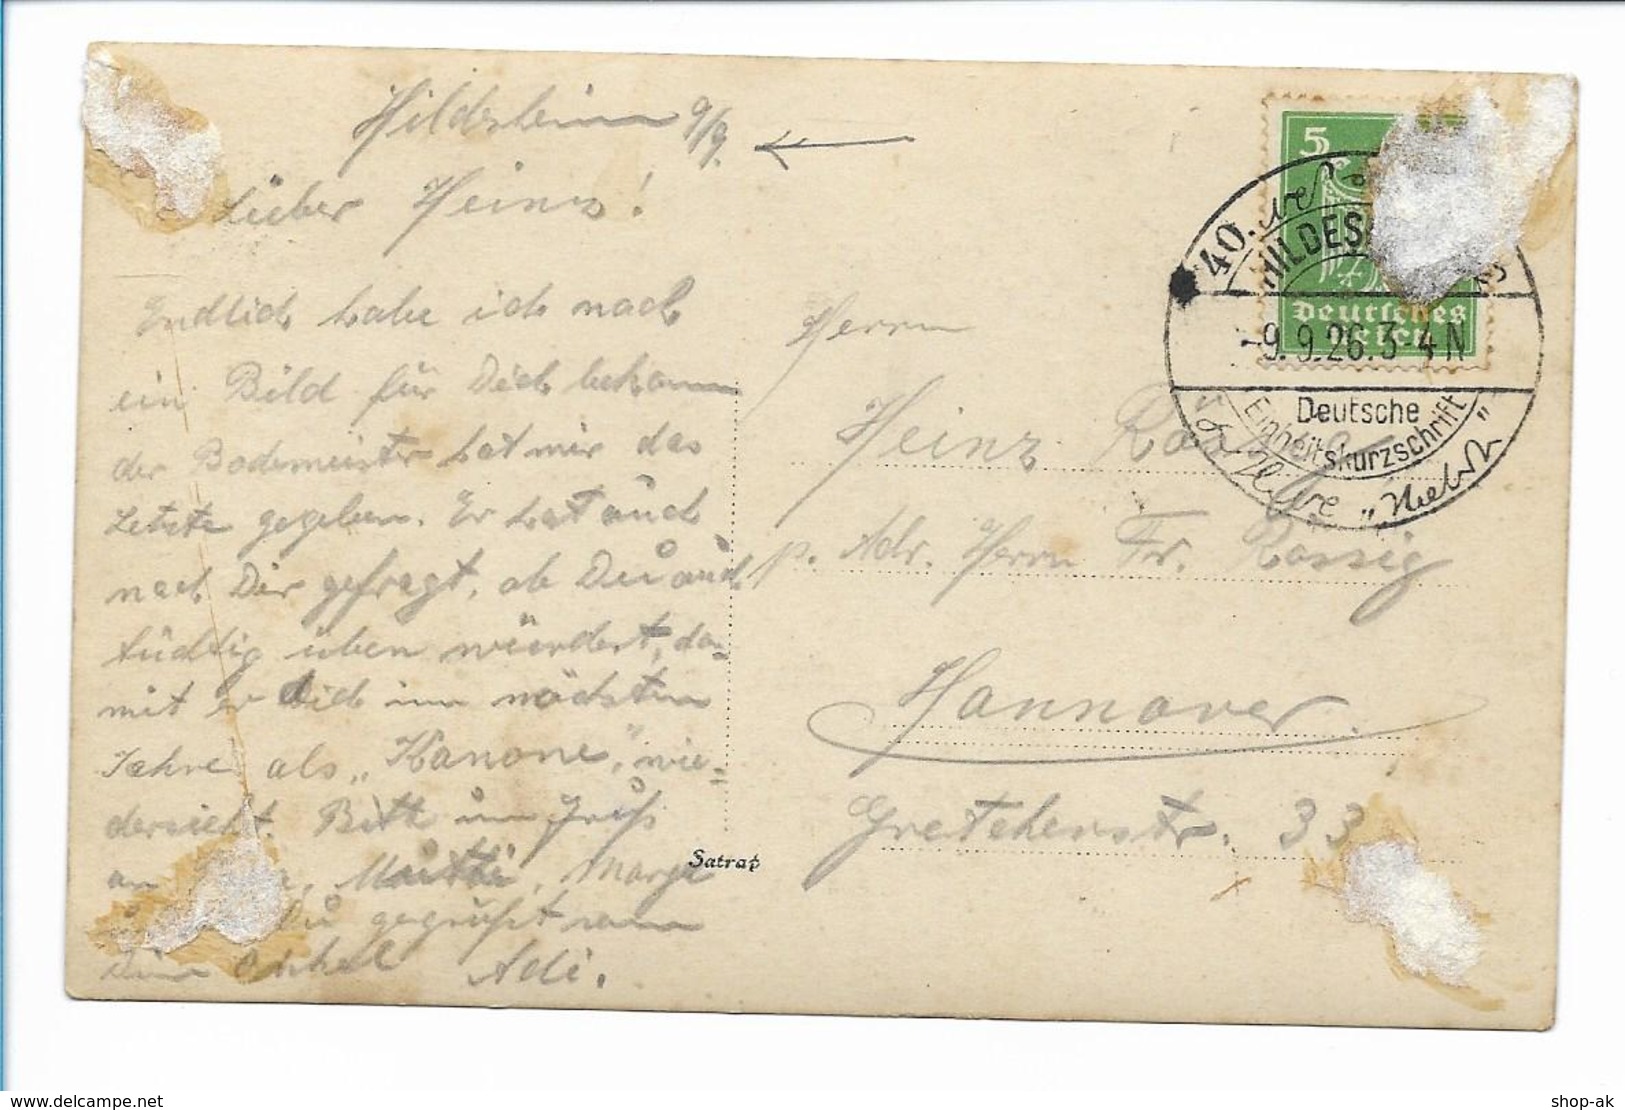 Hildesheim 9/9.
Lieber Heinz!
Endlich habe ich nach
ein Bild für Dich bekomm
der Bademeister hat mir das
Letzte gegeben. Er hat auch
nach Dir gefragt, ob Du auch
tüchtig üben würdest, da-
mit er Dich im nächsten
Jahre als „Kanone" wie-
dersieht. Bitte um Gruß
an Mutti, Marga
Du gegrüßt von
Dein Onkel Adi.
Satrap
5
Deutsches
Reich
40.
HILDES
-9.9.26.3-4N
Deutsche
Einheitskurzschrift
Herrn
Heinz
p. Adr. Herrn Fr. Rossig
Hannover.
Gretchenstr. 33
delcampe.net
shop-ak